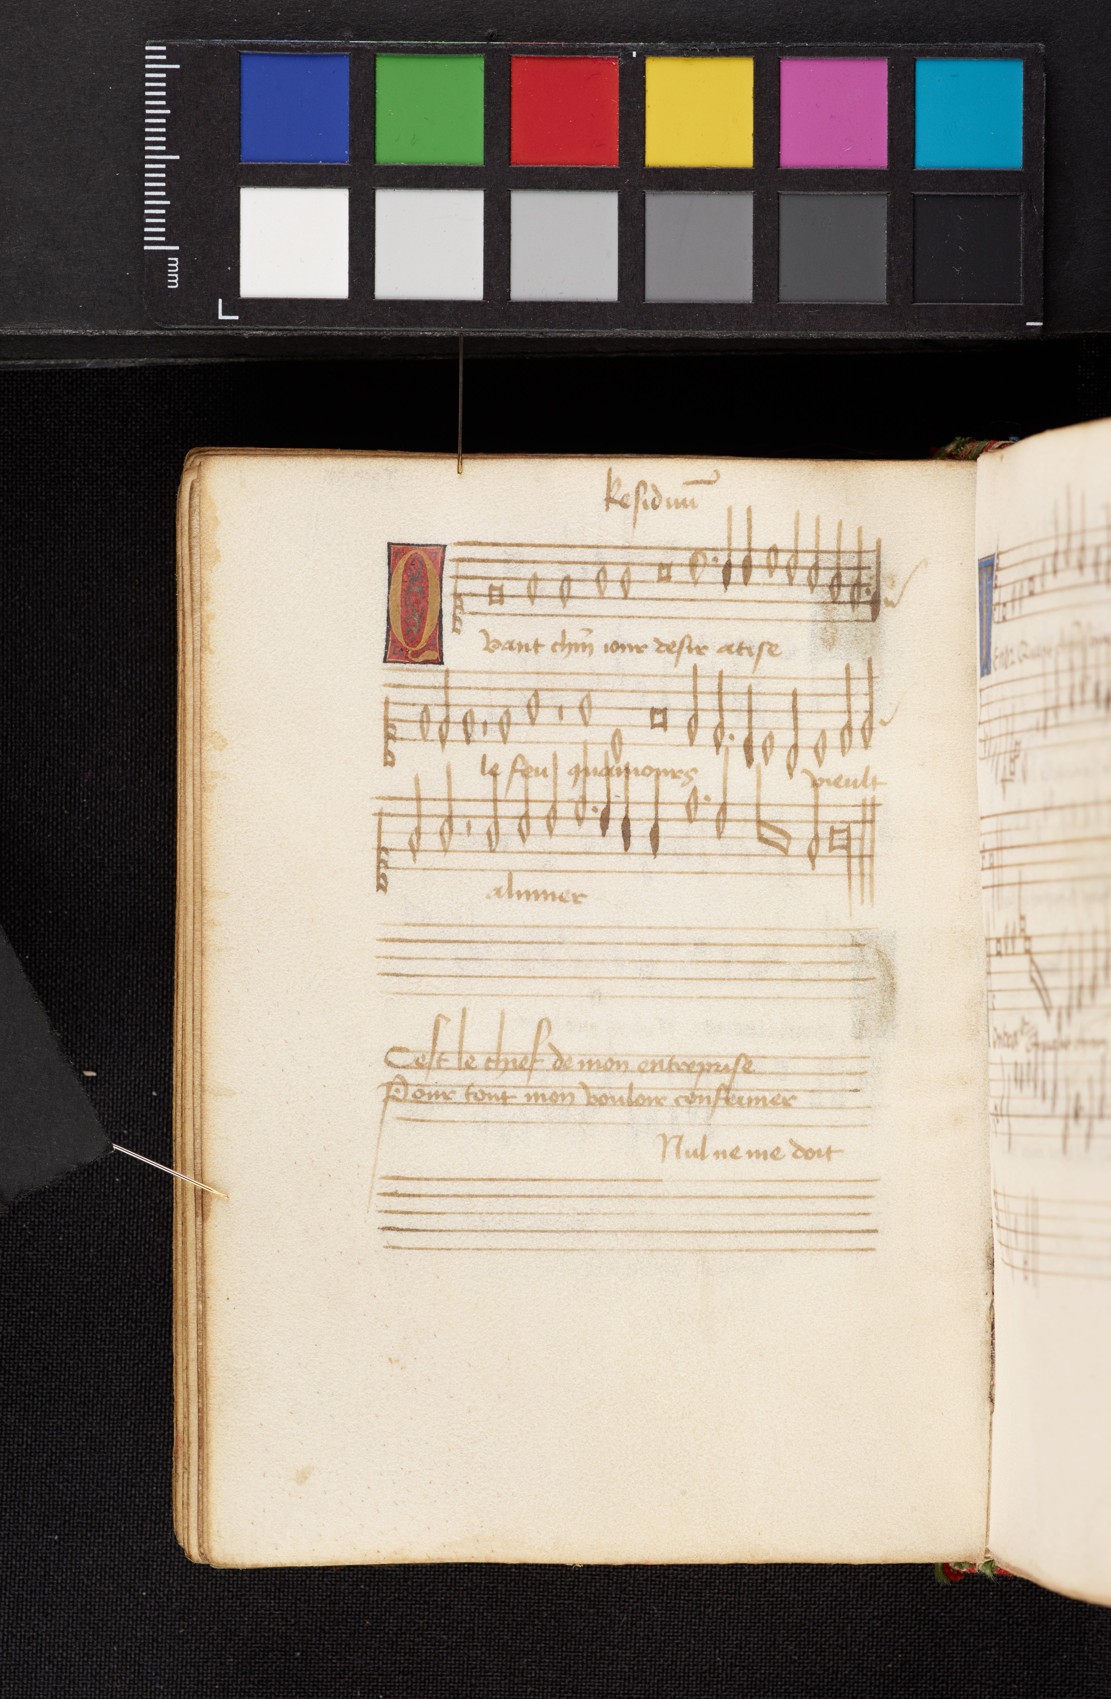 mm
Residuū
Quant chūn iour desir atise
le feu quamours vieult
alumer
Cest le chief de mon entreprise
Pour tout mon vouloir confermer
Nul ne me doit